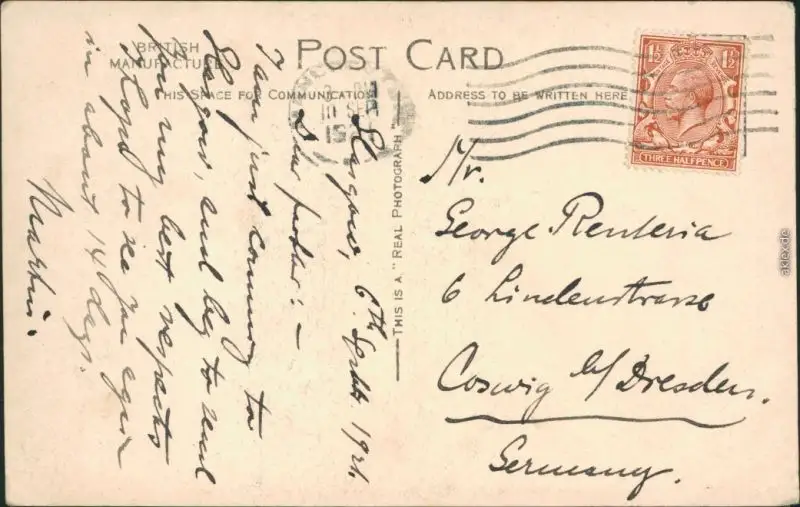 BRITISH
MANUFACTURE
POST CARD
THIS SPACE FOR COMMUNICATION
ADDRESS TO BE WRITTEN HERE
1½ 1½
THREE HALFPENCE
10 SEP
THIS IS A "REAL PHOTOGRAPH"
Glasgow, 6th Septb. 1921.
Dear
I am just coming to
and beg to send
you my best respects
Hope to see you again
in about 14 days.
Martin.
Mr.
George Renteria
6 Lindenstrasse
Coswig b/Dresden.
Germany.
akpool.de